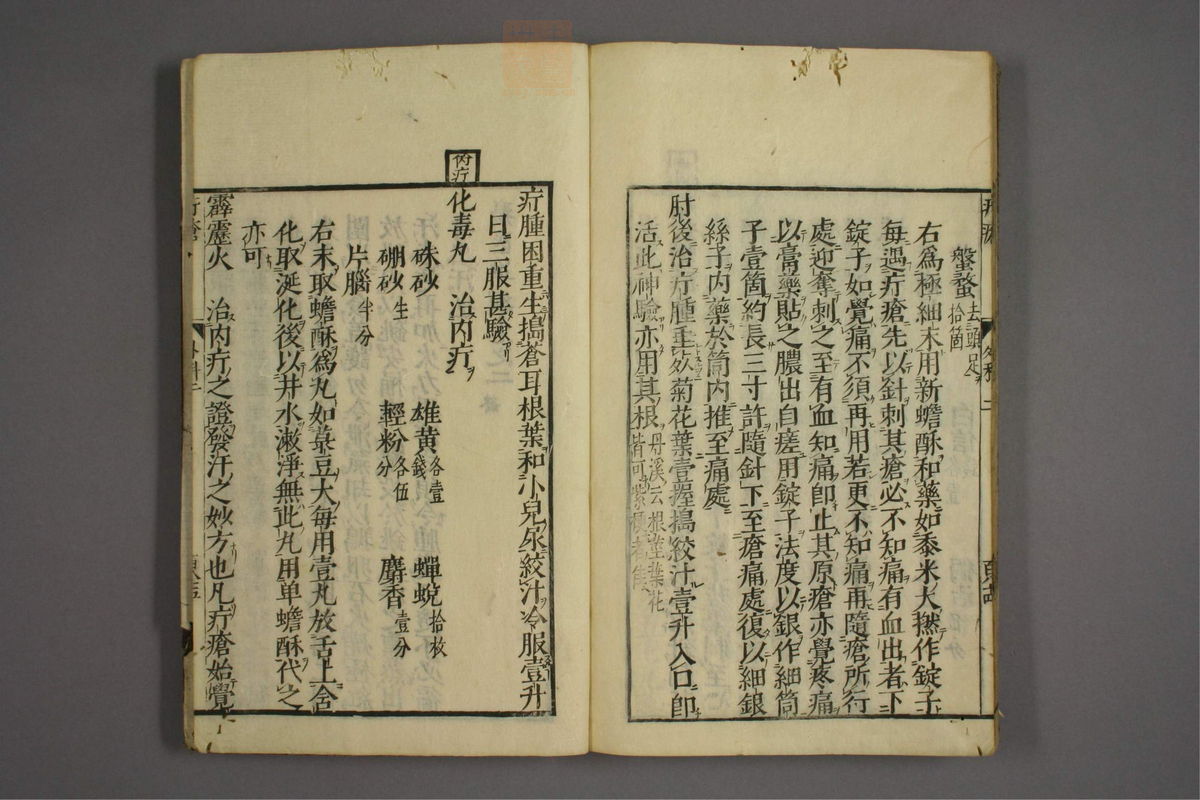 螌蝥去頭足拾箇
右爲極細末用新蟾酥和藥如黍米大撚作錠子
每遇疔瘡先以針刺其瘡必不知痛有血出者下
錠子如覺痛不須再用若更不知痛再隨瘡所行
處迎奪刺之至有血知痛卽止其原瘡亦覺疼痛
以膏藥貼之膿出自瘥用錠子法度以銀作細筒
子壹箇約長三寸許隨針下至瘡痛處復以細銀
絲子内藥於筒内推至痛處
肘後治疔腫垂㱙菊花葉壹握搗絞汁壹升入口卽
活此神驗亦用其根丹溪云根莖葉花皆可紫梗者佳
疔腫困重生搗蒼耳根葉和小兒尿絞汁冷服壹升
日三服甚驗
内疔
化毒丸 治内疔
硃砂 雄黄各壹錢 蟬蛻拾枚
硼砂生 輕粉各伍分 麝香壹分
片腦半分
右末取蟾酥爲丸如菉豆大每用壹丸放舌上含
化取涎化後以井水漱淨無此丸用单蟾酥代之
亦可
霹靂火 治内疔之證發汗之妙方也凡疔瘡始覺